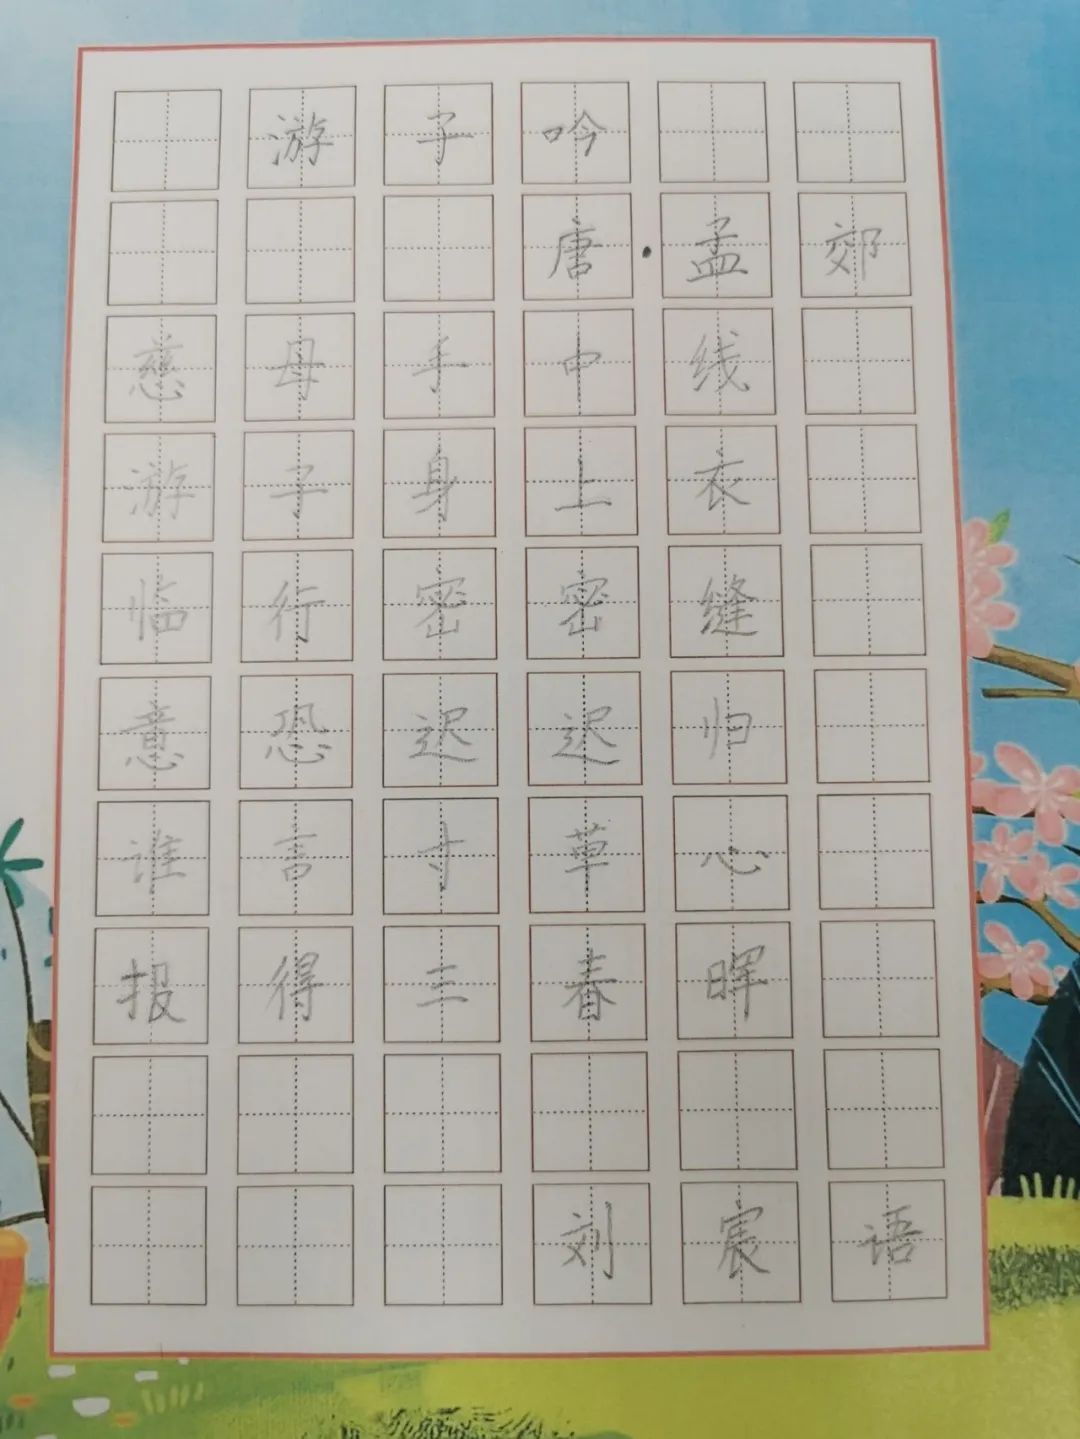 游子吟
唐·孟郊
慈母手中线
游子身上衣
临行密密缝
意恐迟迟归
谁言寸草心
报得三春晖
刘宸语